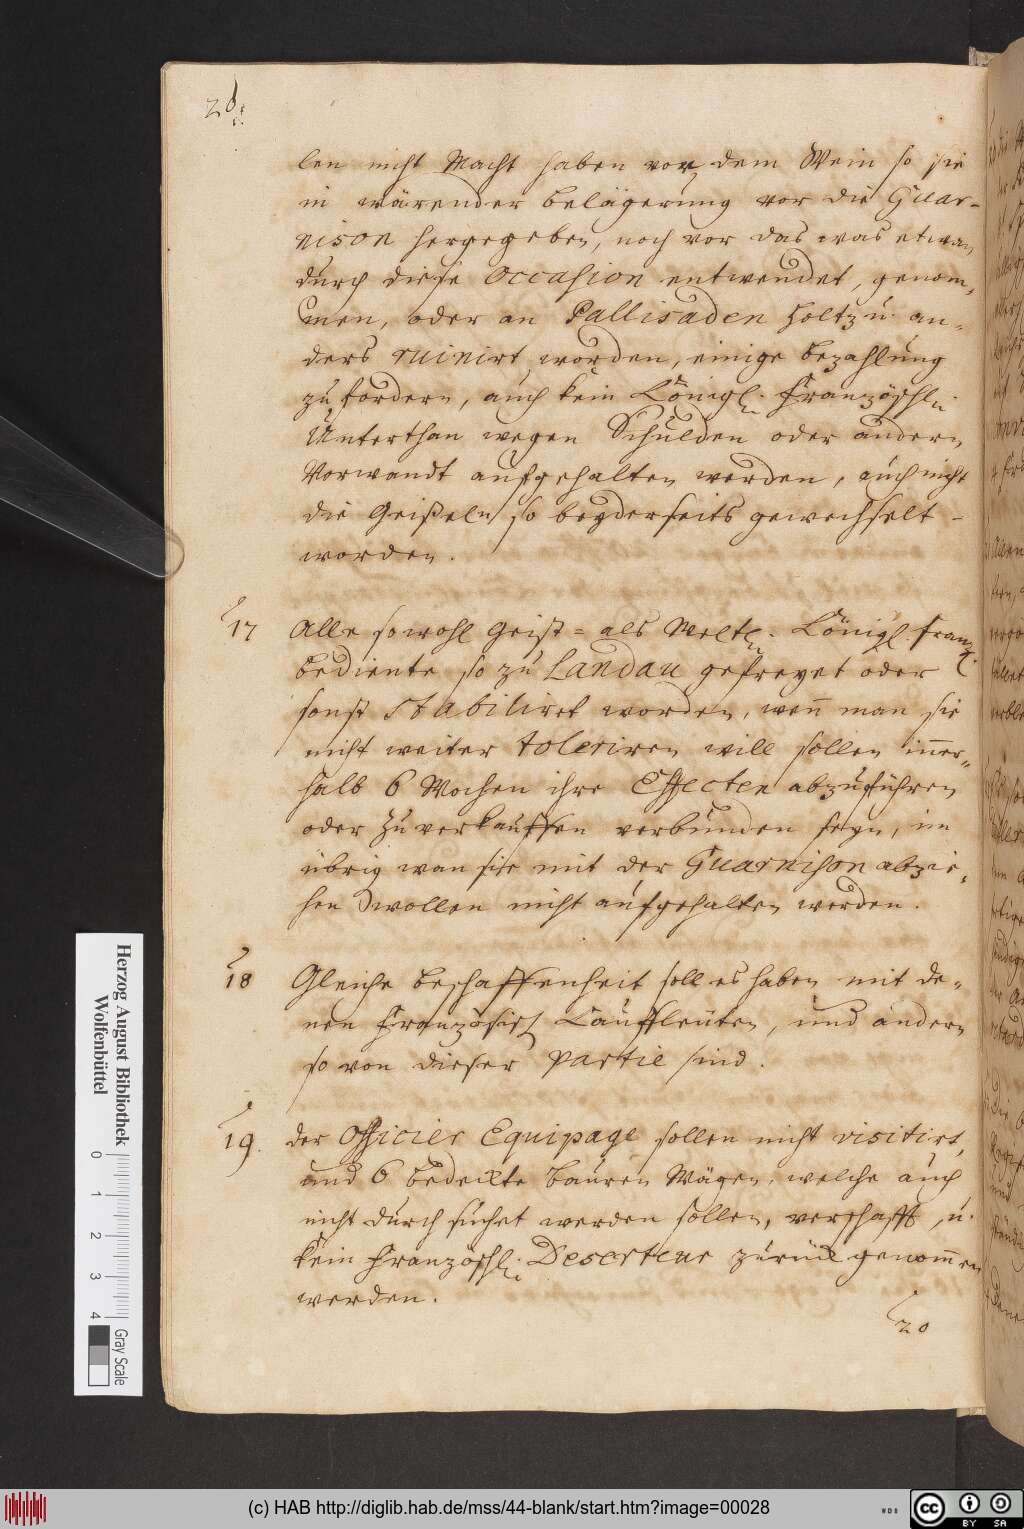 28.
len nicht Macht haben vor dem Wein so sie
in wärender belägerung vor die Guar-
nison hergegeben, noch vor das was etwan
durch diese occasion entwendet, genom-
men, oder an Pallisaden holtz u. an-
ders ruinirt worden, einige bezahlung
zu fordern, auch kein Königl. Französchl.
Unterthan wegen Schulden oder andern
Vorwandt aufgehalten werden, auch nicht
die Geißeln so beyderseits gewechselt -
worden.
17 Alle sowohl Geist- als Weltl. Königl. Franz.
bediente so zu Landau gefreyet oder
sonst stabiliret worden, wen̄ man sie
nicht weiter toleriren will sollen in̄er-
halb 6 Wochen ihre Effecten abzuführen
oder zu verkauffen verbunden seyn, im
übrig wan sie mit der Guarnison abzie-
hen wollen nicht aufgehalten werden.
18 Gleiche beschaffenheit soll es haben mit de-
nen Französisch Kauffleuten, und andern
so von dieser Partie sind.
19. der Officier Equipage sollen nicht visitirt,
und 6 bedeckte bauren Wägen, welche auch
nicht durch suchet werden sollen, verschafft, u.
kein Französchl. Deserteur zurück genom̄en
werden.
20
Herzog August Bibliothek
Wolfenbüttel
0 1 2 3 4
Gray Scale
(c) HAB http://diglib.hab.de/mss/44-blank/start.htm?image=00028
WDB
cc BY SA